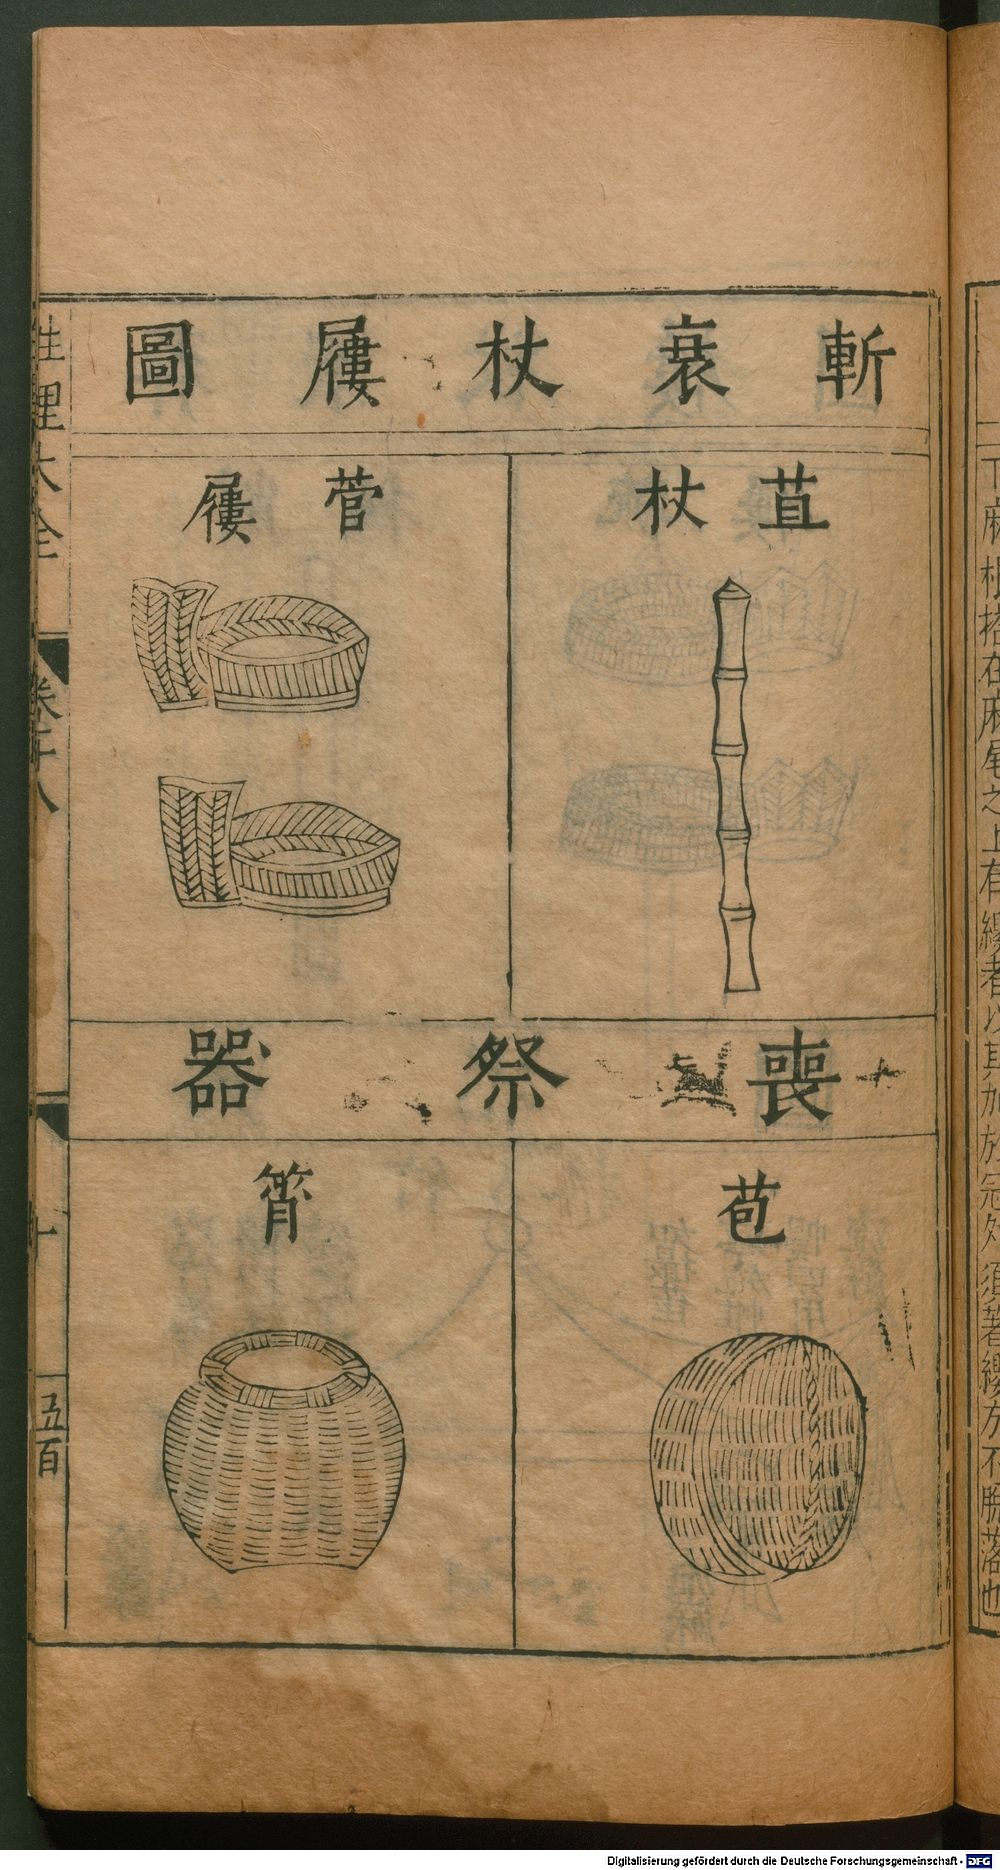 斬衰杖屨圖
苴杖
菅屨
喪祭器
苞
筲
性理大全
卷十八
十
五百
下麻根搭在麻尾之上有纓者以其加於冠外須著纓方不脫落也
Digitalisierung gefördert durch die Deutsche Forschungsgemeinschaft - DFG